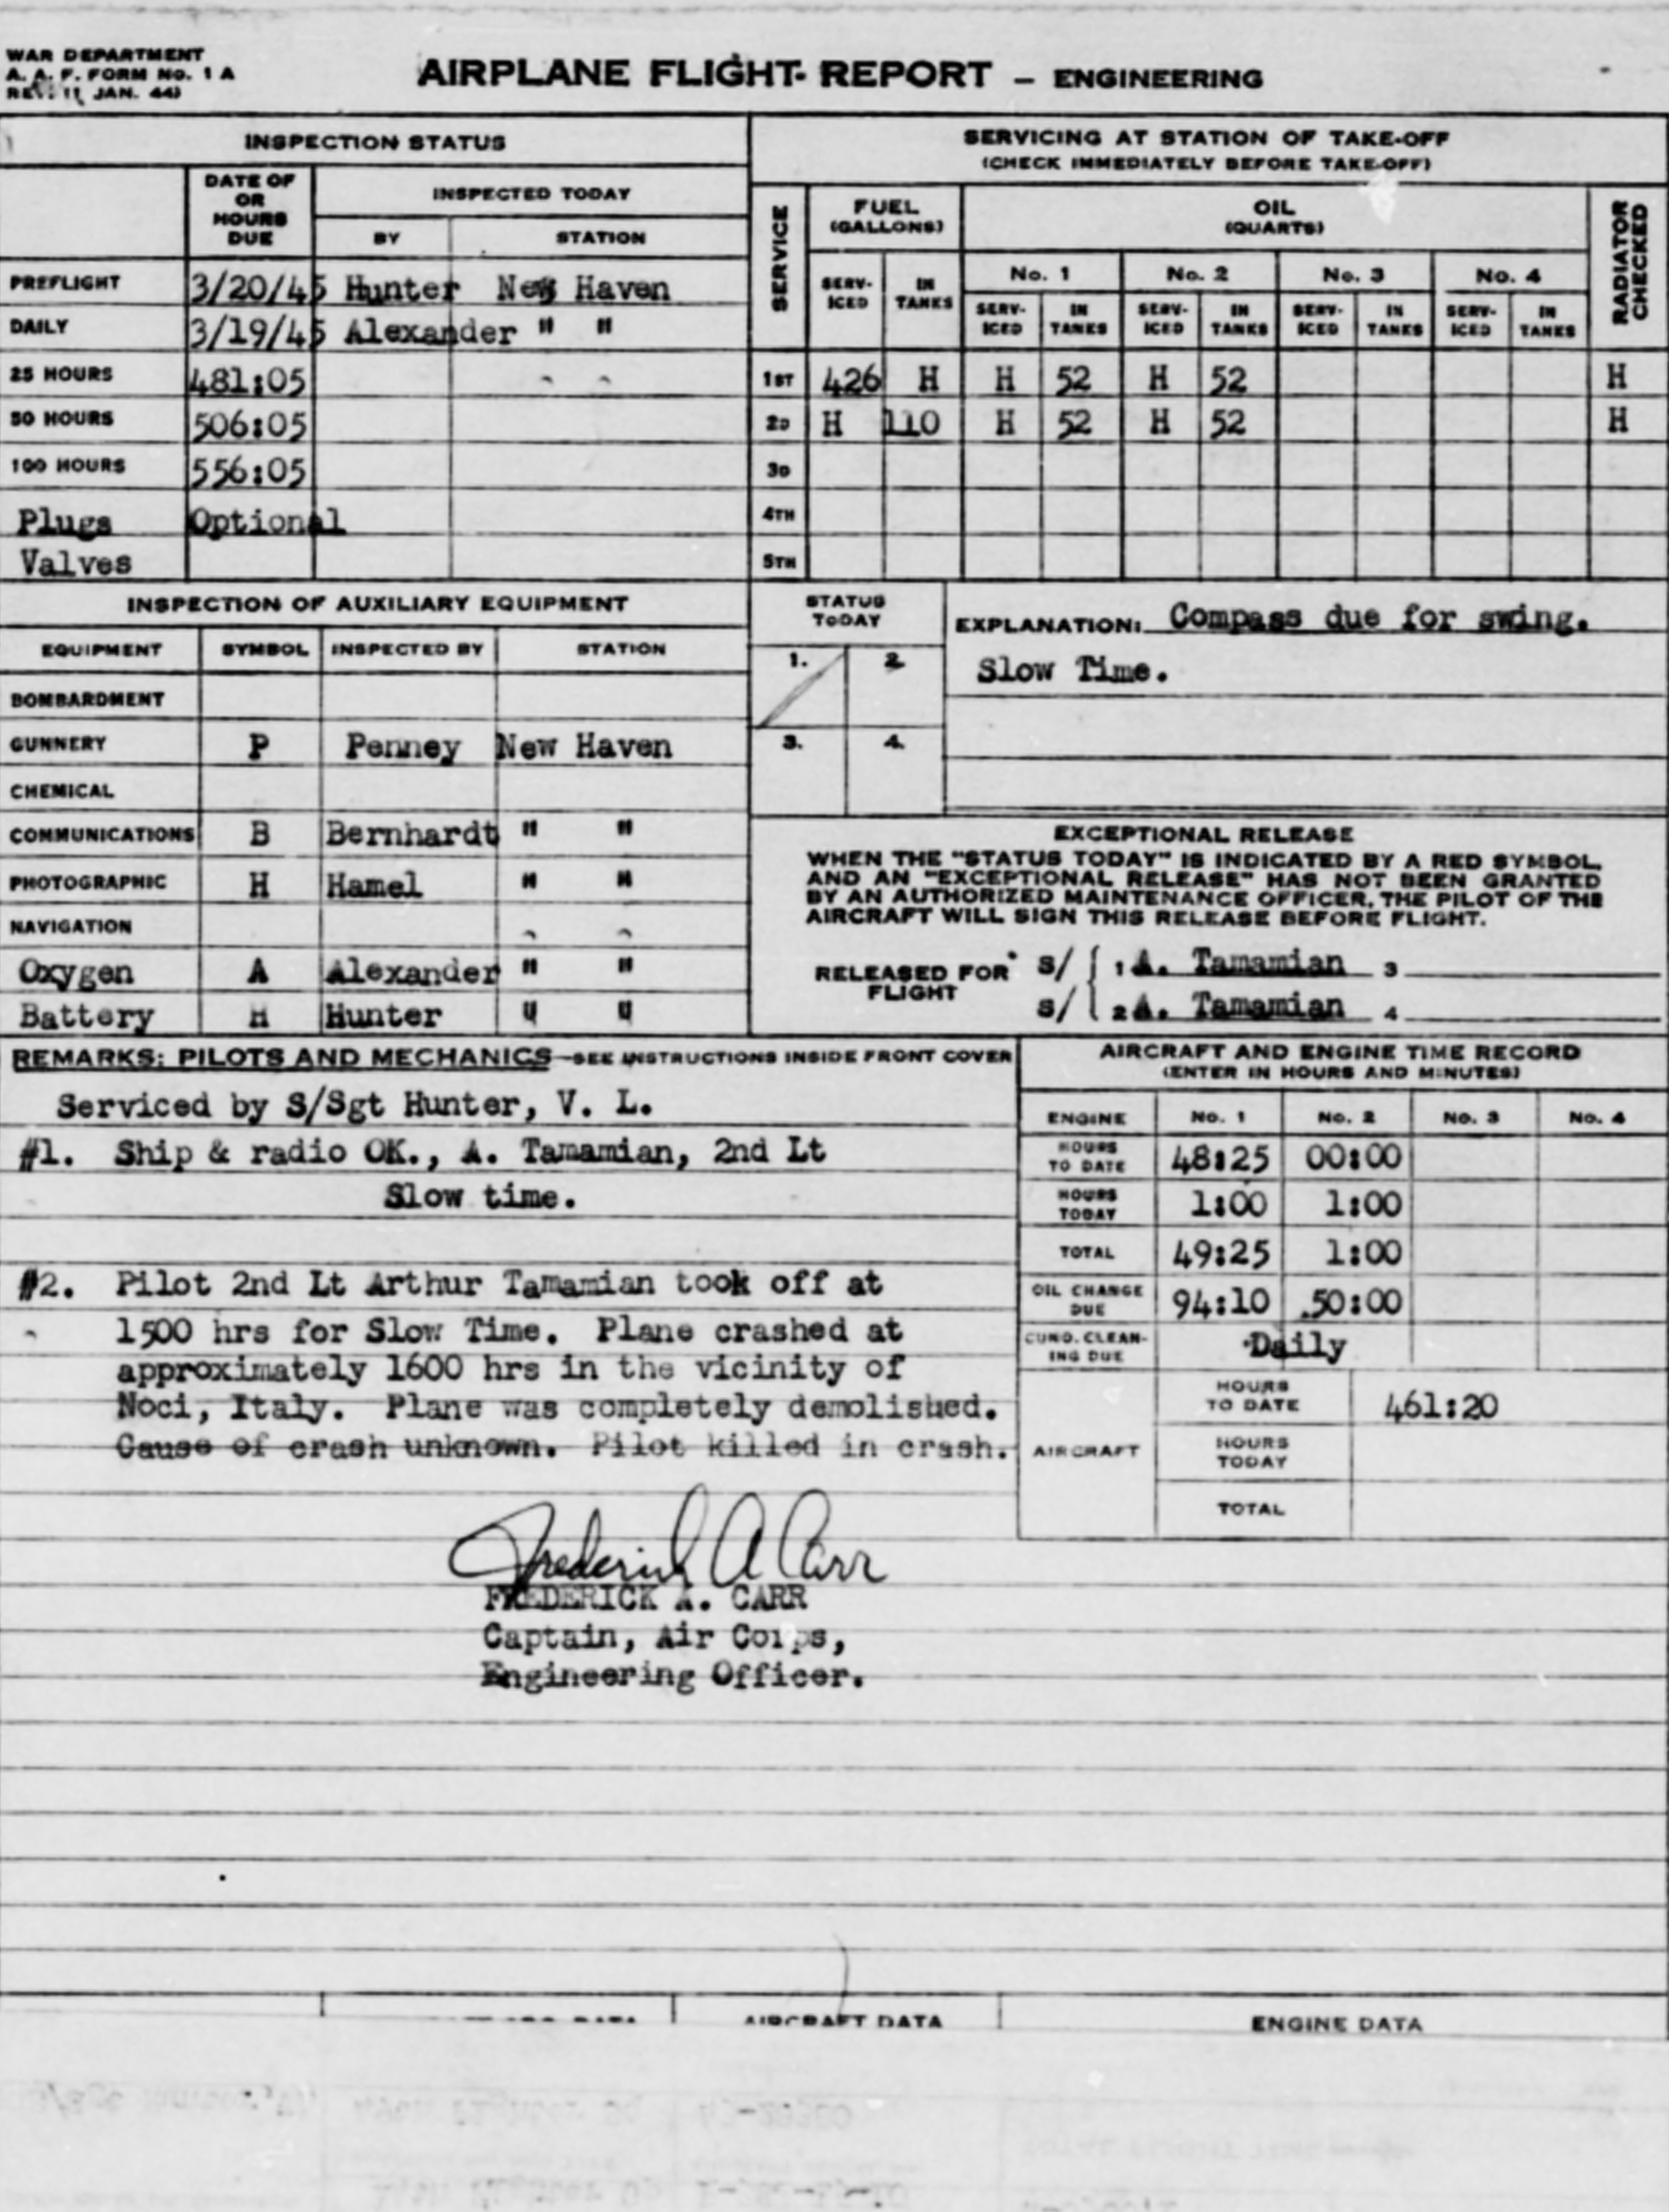 WAR DEPARTMENT
A. A. F. FORM NO. 1 A
REV. 11 JAN. 44)
AIRPLANE FLIGHT REPORT – ENGINEERING
INSPECTION STATUS
DATE OF OR HOURS DUE
INSPECTED TODAY
BY STATION
PREFLIGHT 3/20/45 Hunter New Haven
DAILY 3/19/45 Alexander " "
25 HOURS 481:05
50 HOURS 506:05
100 HOURS 556:05
Plugs Optional
Valves
SERVICING AT STATION OF TAKE-OFF
(CHECK IMMEDIATELY BEFORE TAKE-OFF)
SERVICE
FUEL (GALLONS)
OIL (QUARTS)
RADIATOR CHECKED
No. 1 No. 2 No. 3 No. 4
SERV-ICED IN TANKS SERV-ICED IN TANKS SERV-ICED IN TANKS SERV-ICED IN TANKS SERV-ICED IN TANKS
1ST 426 H H 52 H 52 H
2D H 110 H 52 H 52 H
3D
4TH
5TH
INSPECTION OF AUXILIARY EQUIPMENT
EQUIPMENT SYMBOL INSPECTED BY STATION
BOMBARDMENT
GUNNERY P Penney New Haven
CHEMICAL
COMMUNICATIONS B Bernhardt " "
PHOTOGRAPHIC H Hamel " "
NAVIGATION
Oxygen A Alexander " "
Battery H Hunter " "
STATUS TODAY
1. 2.
3. 4.
EXPLANATION: Compass due for swing.
Slow Time.
EXCEPTIONAL RELEASE
WHEN THE "STATUS TODAY" IS INDICATED BY A RED SYMBOL,
AND AN "EXCEPTIONAL RELEASE" HAS NOT BEEN GRANTED
BY AN AUTHORIZED MAINTENANCE OFFICER, THE PILOT OF THE
AIRCRAFT WILL SIGN THIS RELEASE BEFORE FLIGHT.
RELEASED FOR FLIGHT
s/ 1 A. Tamamian 3
s/ 2 A. Tamamian 4
REMARKS: PILOTS AND MECHANICS—SEE INSTRUCTIONS INSIDE FRONT COVER
Serviced by S/Sgt Hunter, V. L.
#1. Ship & radio OK., A. Tamamian, 2nd Lt
Slow time.
#2. Pilot 2nd Lt Arthur Tamamian took off at
1500 hrs for Slow Time. Plane crashed at
approximately 1600 hrs in the vicinity of
Noci, Italy. Plane was completely demolished.
Cause of crash unknown. Pilot killed in crash.
AIRCRAFT AND ENGINE TIME RECORD
(ENTER IN HOURS AND MINUTES)
ENGINE No. 1 No. 2 No. 3 No. 4
HOURS TO DATE 48:25 00:00
HOURS TODAY 1:00 1:00
TOTAL 49:25 1:00
OIL CHANGE DUE 94:10 50:00
CUNO. CLEAN-ING DUE Daily
AIRCRAFT
HOURS TO DATE 461:20
HOURS TODAY
TOTAL
Frederick A Carr
FREDERICK A. CARR
Captain, Air Corps,
Engineering Officer.
AIRCRAFT DATA ENGINE DATA